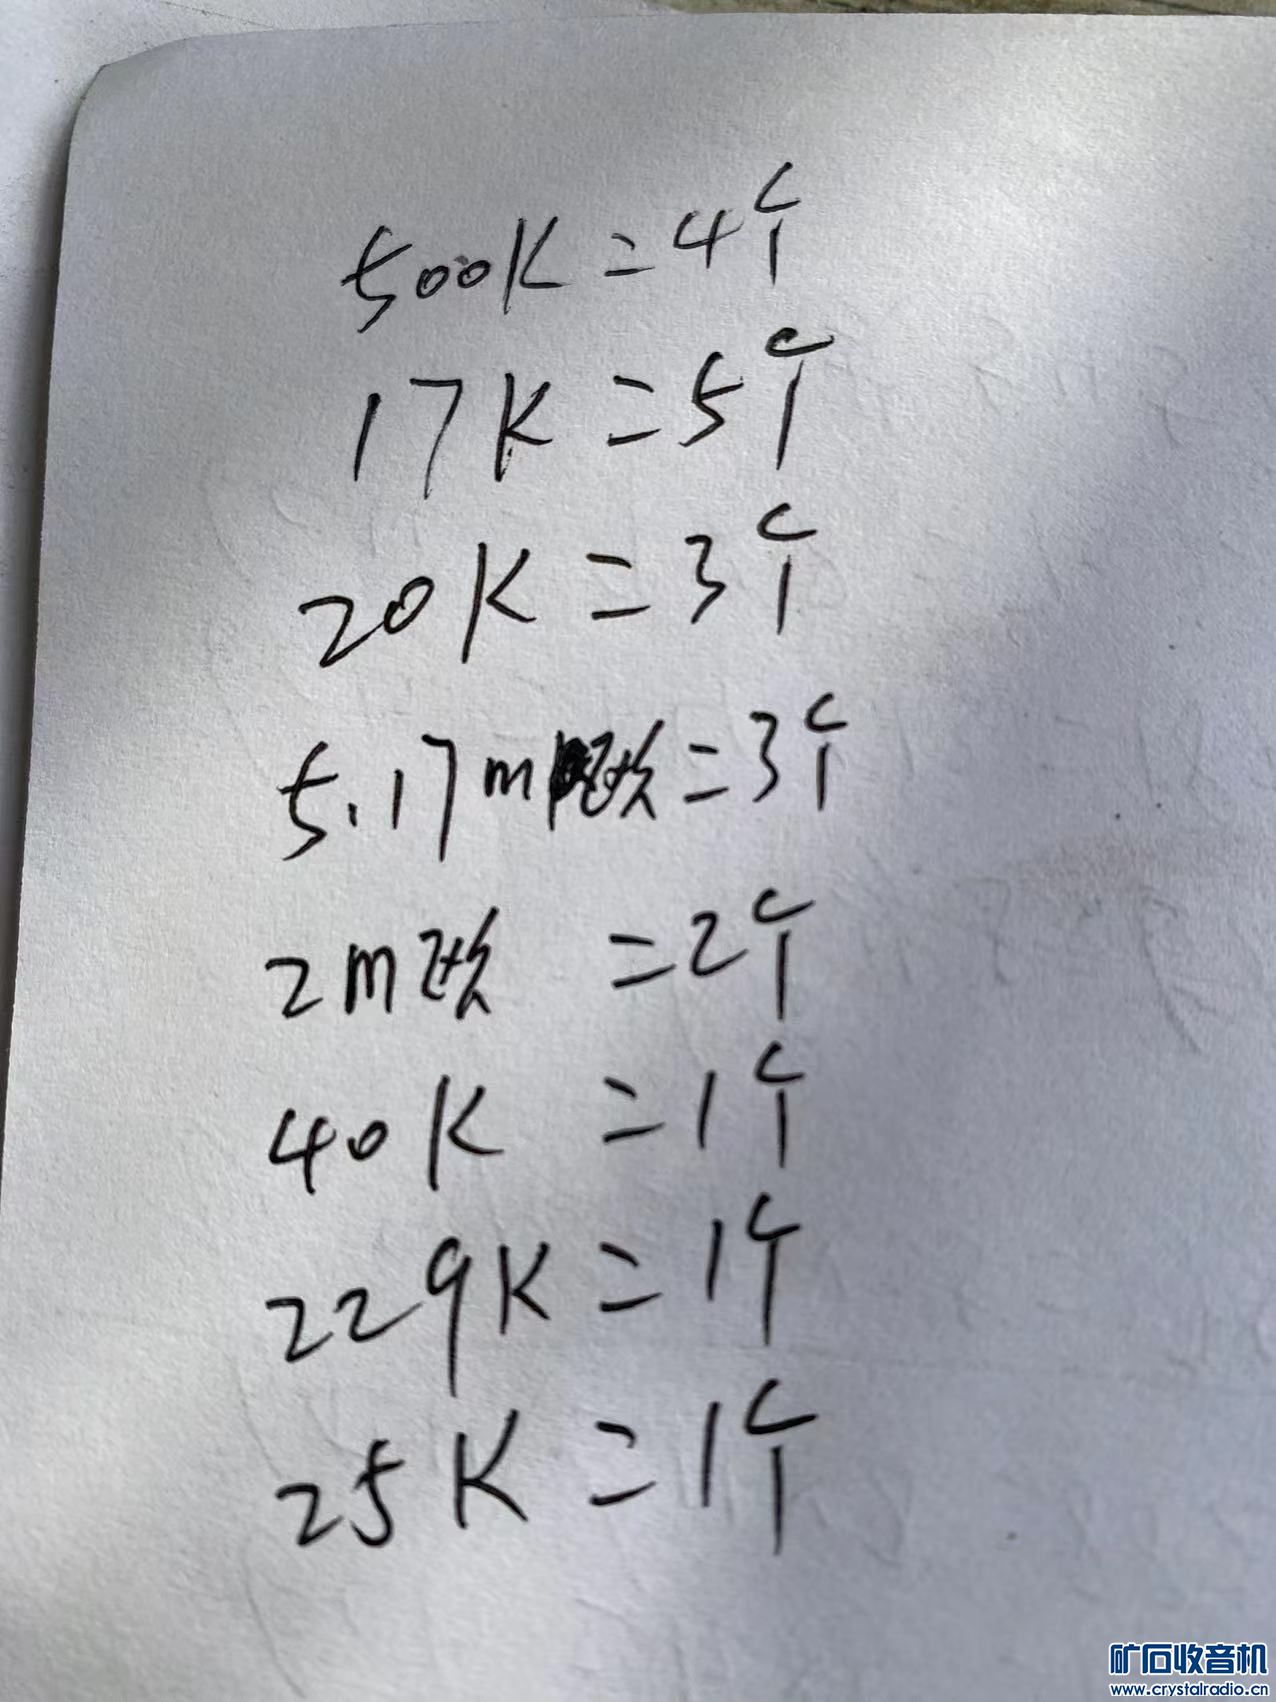 500K=4个
17K=5个
20K=3个
5.17m欧=3个
2m欧 =2个
40K =1个
229K=1个
25K=1个
矿石收音机
www.crystalradio.cn